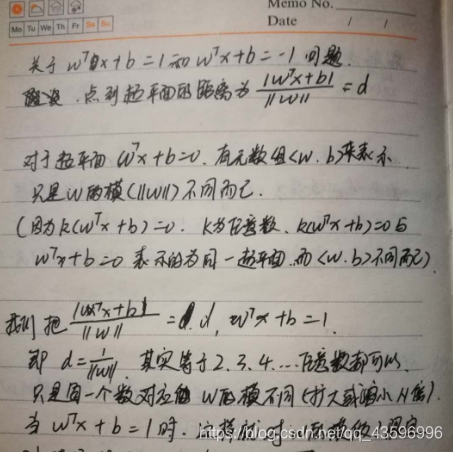 Memo No.
Mo Tu We Th Fr Sa Su
Date / /
关于 wᵀx+b=1和 wᵀx+b=-1 问题.
点到超平面的距离为 |wᵀx+b| / ||w|| = d
对于超平面 wᵀx+b=0. 有无数组<w.b>来表示
只是w的模(||w||)不同而已.
(因为k(wᵀx+b)=0. k为任意数. k(wᵀx+b)=0与
wᵀx+b=0 表示的为同一超平面.而<w.b>不同而已).
我们把 |wᵀx+b| / ||w|| = d, wᵀx+b=1.
即 d=1/||w||. 其实等于2.3.4...任意数都可以.
只是同一个数对应 w的模不同(扩大或缩小N倍).
当 wᵀx+b=1时.
https://blog.csdn.net/qq_43596996